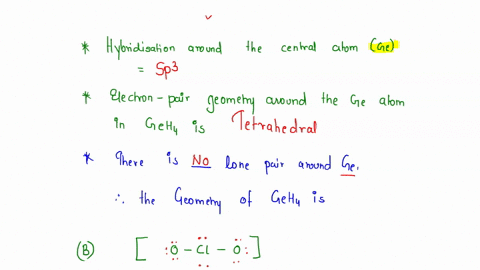 * Hybridisation around the central atom (Ge)
= Sp3
* Electron-pair geometry around the Ge atom
in GeH4 is Tetrahedral
* There is NO lone pair around Ge.
∴ the Geometry of GeH4 is
(B) [ :Ö - Cl - Ö: ]